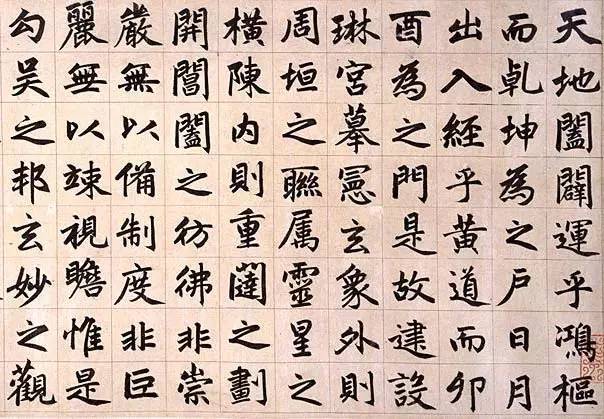 天地闔闢運乎鴻樞
而乹坤為之戶日月
出入經乎黃道而卯
酉為之門是故建設
琳宮摹憲玄象外則
周垣之聯属靈星之
橫陳内則重闥之劃
開閶闔之彷彿非崇
嚴無以備制度非巨
麗無以竦視瞻惟是
勾吴之邦玄妙之觀